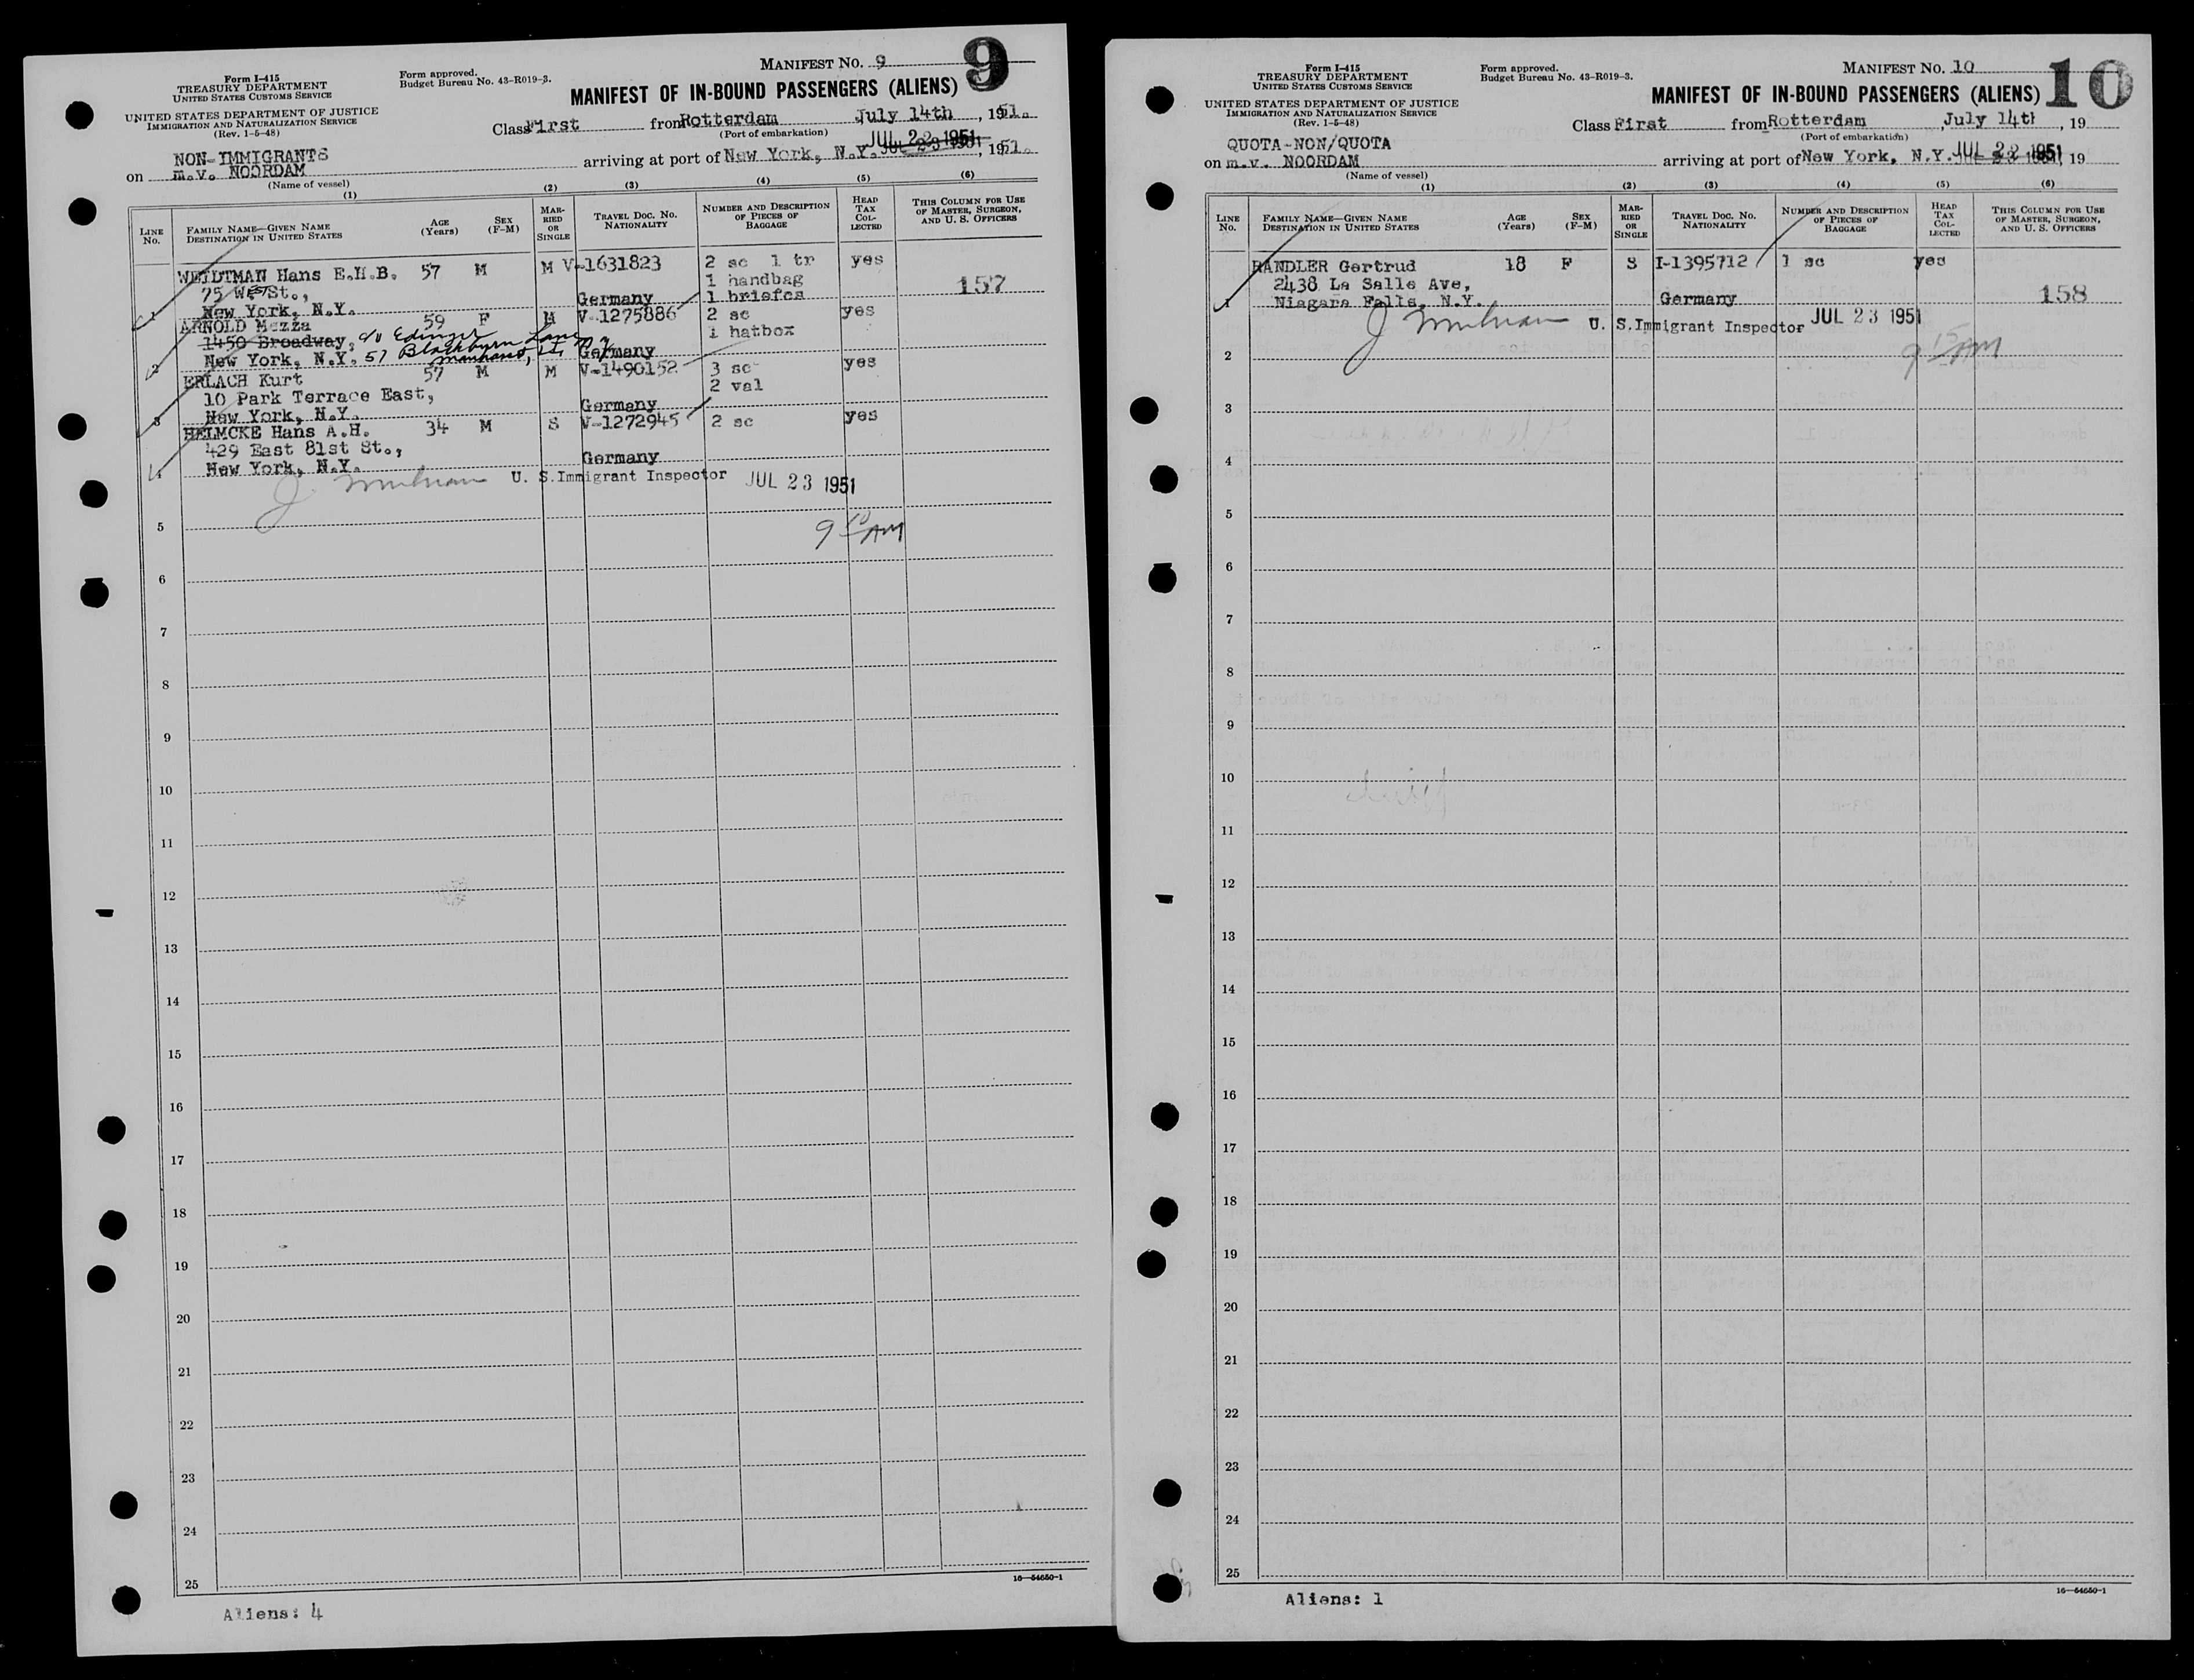 MANIFEST No. 9
9
Form I-415
TREASURY DEPARTMENT
UNITED STATES CUSTOMS SERVICE
Form approved.
Budget Bureau No. 43-R019-3.
MANIFEST OF IN-BOUND PASSENGERS (ALIENS)
UNITED STATES DEPARTMENT OF JUSTICE
IMMIGRATION AND NATURALIZATION SERVICE
(Rev. 1-5-48)
Class First from Rotterdam July 14th, 1951.
(Port of embarkation)
NON-IMMIGRANTS
JUL 22 1951
on m.v. NOORDAM arriving at port of New York, N.Y. JUL 23 1951, 1951.
(Name of vessel)
(1) (2) (3) (4) (5) (6)
LINE No. FAMILY NAME—GIVEN NAME DESTINATION IN UNITED STATES AGE (Years) SEX (F-M) MARRIED OR SINGLE TRAVEL DOC. NO. NATIONALITY NUMBER AND DESCRIPTION OF PIECES OF BAGGAGE HEAD TAX COLLECTED THIS COLUMN FOR USE OF MASTER, SURGEON, AND U. S. OFFICERS
WEIDTMAN Hans E.H.B. 57 M M V-1631823 2 sc 1 tr yes
75 West St., 1 handbag 157
1 New York, N.Y. Germany 1 briefcs
ARNOLD Mezza 59 F M V-1275886 2 sc yes
1450 Broadway, c/o Edinger 1 hatbox
2 New York, N.Y. 57 Blackburn Lane Manhasset, L.I. N.Y. Germany
ERLACH Kurt 57 M M V-1490152 3 sc yes
10 Park Terrace East, 2 val
3 New York, N.Y. Germany
HELMCKE Hans A.H. 34 M S V-1272945 2 sc yes
429 East 81st St.,
4 New York, N.Y. Germany
U. S. Immigrant Inspector JUL 23 1951
5
9 10 AM
6
7
8
9
10
11
12
13
14
15
16
17
18
19
20
21
22
23
24
25
16—54650-1
Aliens: 4
MANIFEST No. 10
10
Form I-415
TREASURY DEPARTMENT
UNITED STATES CUSTOMS SERVICE
Form approved.
Budget Bureau No. 43-R019-3.
MANIFEST OF IN-BOUND PASSENGERS (ALIENS)
UNITED STATES DEPARTMENT OF JUSTICE
IMMIGRATION AND NATURALIZATION SERVICE
(Rev. 1-5-48)
Class First from Rotterdam, July 14th, 19
(Port of embarkation)
QUOTA-NON/QUOTA
JUL 22 1951
on m.v. NOORDAM arriving at port of New York, N.Y. , 19
(Name of vessel)
(1) (2) (3) (4) (5) (6)
LINE No. FAMILY NAME—GIVEN NAME DESTINATION IN UNITED STATES AGE (Years) SEX (F-M) MARRIED OR SINGLE TRAVEL DOC. NO. NATIONALITY NUMBER AND DESCRIPTION OF PIECES OF BAGGAGE HEAD TAX COLLECTED THIS COLUMN FOR USE OF MASTER, SURGEON, AND U. S. OFFICERS
HANDLER Gertrud 18 F S I-1395712 1 sc yes
2438 La Salle Ave,
1 Niagara Falls, N.Y. Germany 158
U. S. Immigrant Inspector JUL 23 1951
2 9 15 AM
3
4
5
6
7
8
9
10
11
12
13
14
15
16
17
18
19
20
21
22
23
24
25
16—54650-1
Aliens: 1